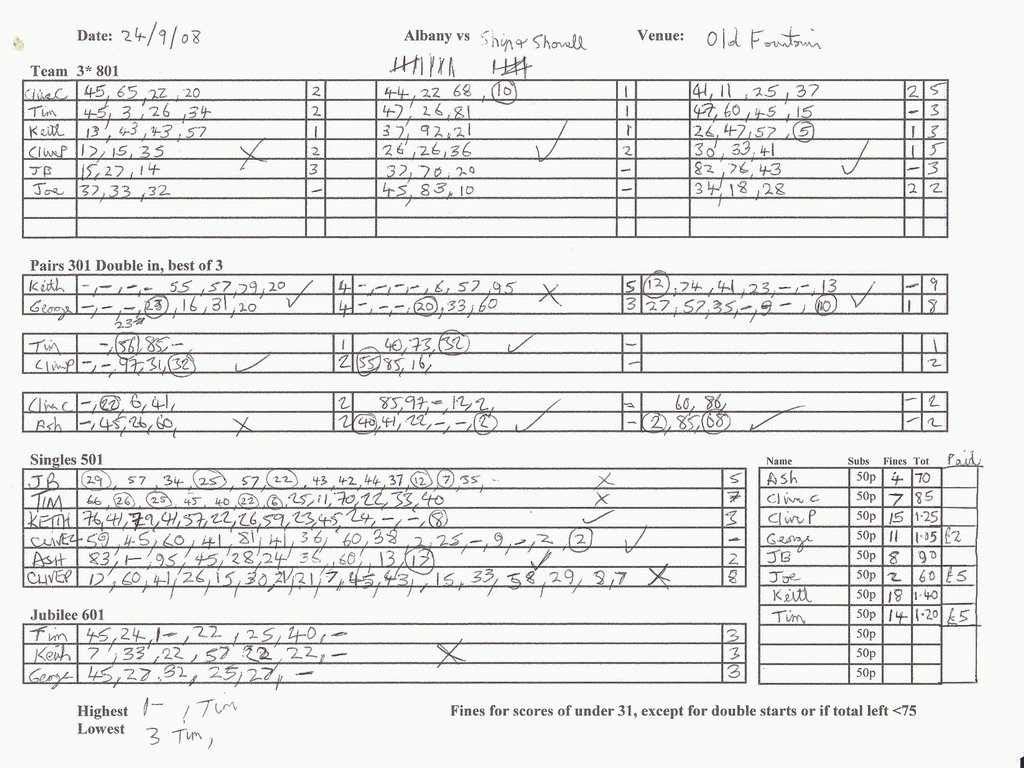 Date: 24/9/08 Albany vs Ship & Shovell Venue: Old Fountain
Team 3* 801
Clive C 45, 65, 22, 20 2 44, 22 68, 10 1 41, 11, 25, 37 2 5
Tim 45, 3, 26, 34 2 47, 26, 81 1 47, 60, 45, 15 - 3
Keith 13, 43, 43, 57 1 37, 92, 21 1 26, 47, 57, 5 1 3
Clive P 17, 15, 35 2 26, 26, 36 2 30, 33, 41 1 5
JB 15, 27, 14 3 37, 70, 20 - 82, 76, 43 - 3
Joe 37, 33, 32 - 45, 83, 10 - 34, 18, 28 2 2
Pairs 301 Double in, best of 3
Keith -, -, -, - 55, 57, 79, 20 4 -, -, -, -, 6, 57, 95 5 12, 74, 41, 23, -, -, 13 - 9
George -, -, -, 23, 16, 31, 20 4 -, -, -, 20, 33, 60 3 27, 57, 35, -, 9 -, 10 1 8
23*
Tim -, 56, 85, - 1 40, 73, 32 - 1
Clive P -, -, 97, 31, 32 2 55, 85, 16, - 2
Clive C -, 22, 6, 41, 2 85, 97, -, 12, 2, - 60, 86, - 2
Ash -, 45, 26, 60, 2 40, 41, 22, -, -, 2 - 2, 85, 68 - 2
Singles 501
JB 29, 57, 34, 25, 57, 22, 43, 42, 44, 37, 12, 7, 35, 5
TIM 66, 26, 25, 45, 40, 22, 6, 25, 11, 70, 22, 33, 40 7
KEITH 76, 41, 79, 41, 57, 22, 26, 59, 23, 45, 24, -, -, 8 3
CLIVE C 59, 45, 60, 41, 81, 41, 36, 60, 38, 2, 25, -, 9, -, 2, 2 -
ASH 83, 1-, 95, 45, 28, 24, 36, 60, 13, 17 2
CLIVE P 17, 60, 41, 26, 15, 30, 21, 21, 7, 45, 43, 15, 33, 58, 29, 8, 7 8
Name Subs Fines Tot Paid
Ash 50p 4 70
Clive C 50p 7 85
Clive P 50p 15 1.25
George 50p 11 1.05 £2
JB 50p 8 90
Joe 50p 2 60 £5
Keith 50p 18 1.40
Tim 50p 14 1.20 £5
50p
50p
50p
Jubilee 601
Tim 45, 24, 1-, 22, 25, 40, - 3
Keith 7, 33, 22, 57 22, 22, - 3
George 45, 27 32, 25, 27, - 3
Highest 1-, Tim
Lowest 3 Tim,
Fines for scores of under 31, except for double starts or if total left <75